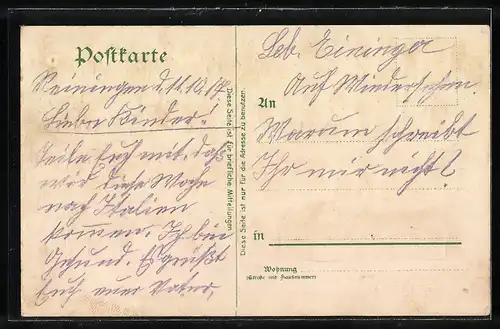 Postkarte
Reiningen d. 11.10.17
Liebe Kinder!
Teile Euch mit, daß
wir diese Woche
nach Italien
kommen. Ich bin
Gesund. Es grüßt
Euch euer Vater,
Diese Seite ist für briefliche Mitteilungen
Diese Seite ist nur für die Adresse zu benutzen.
Geb. Eininger
Auf Wiedersehen.
An
Warum schreibt
Ihr mir nicht?
in
Wohnung
(Straße und Hausnummer)